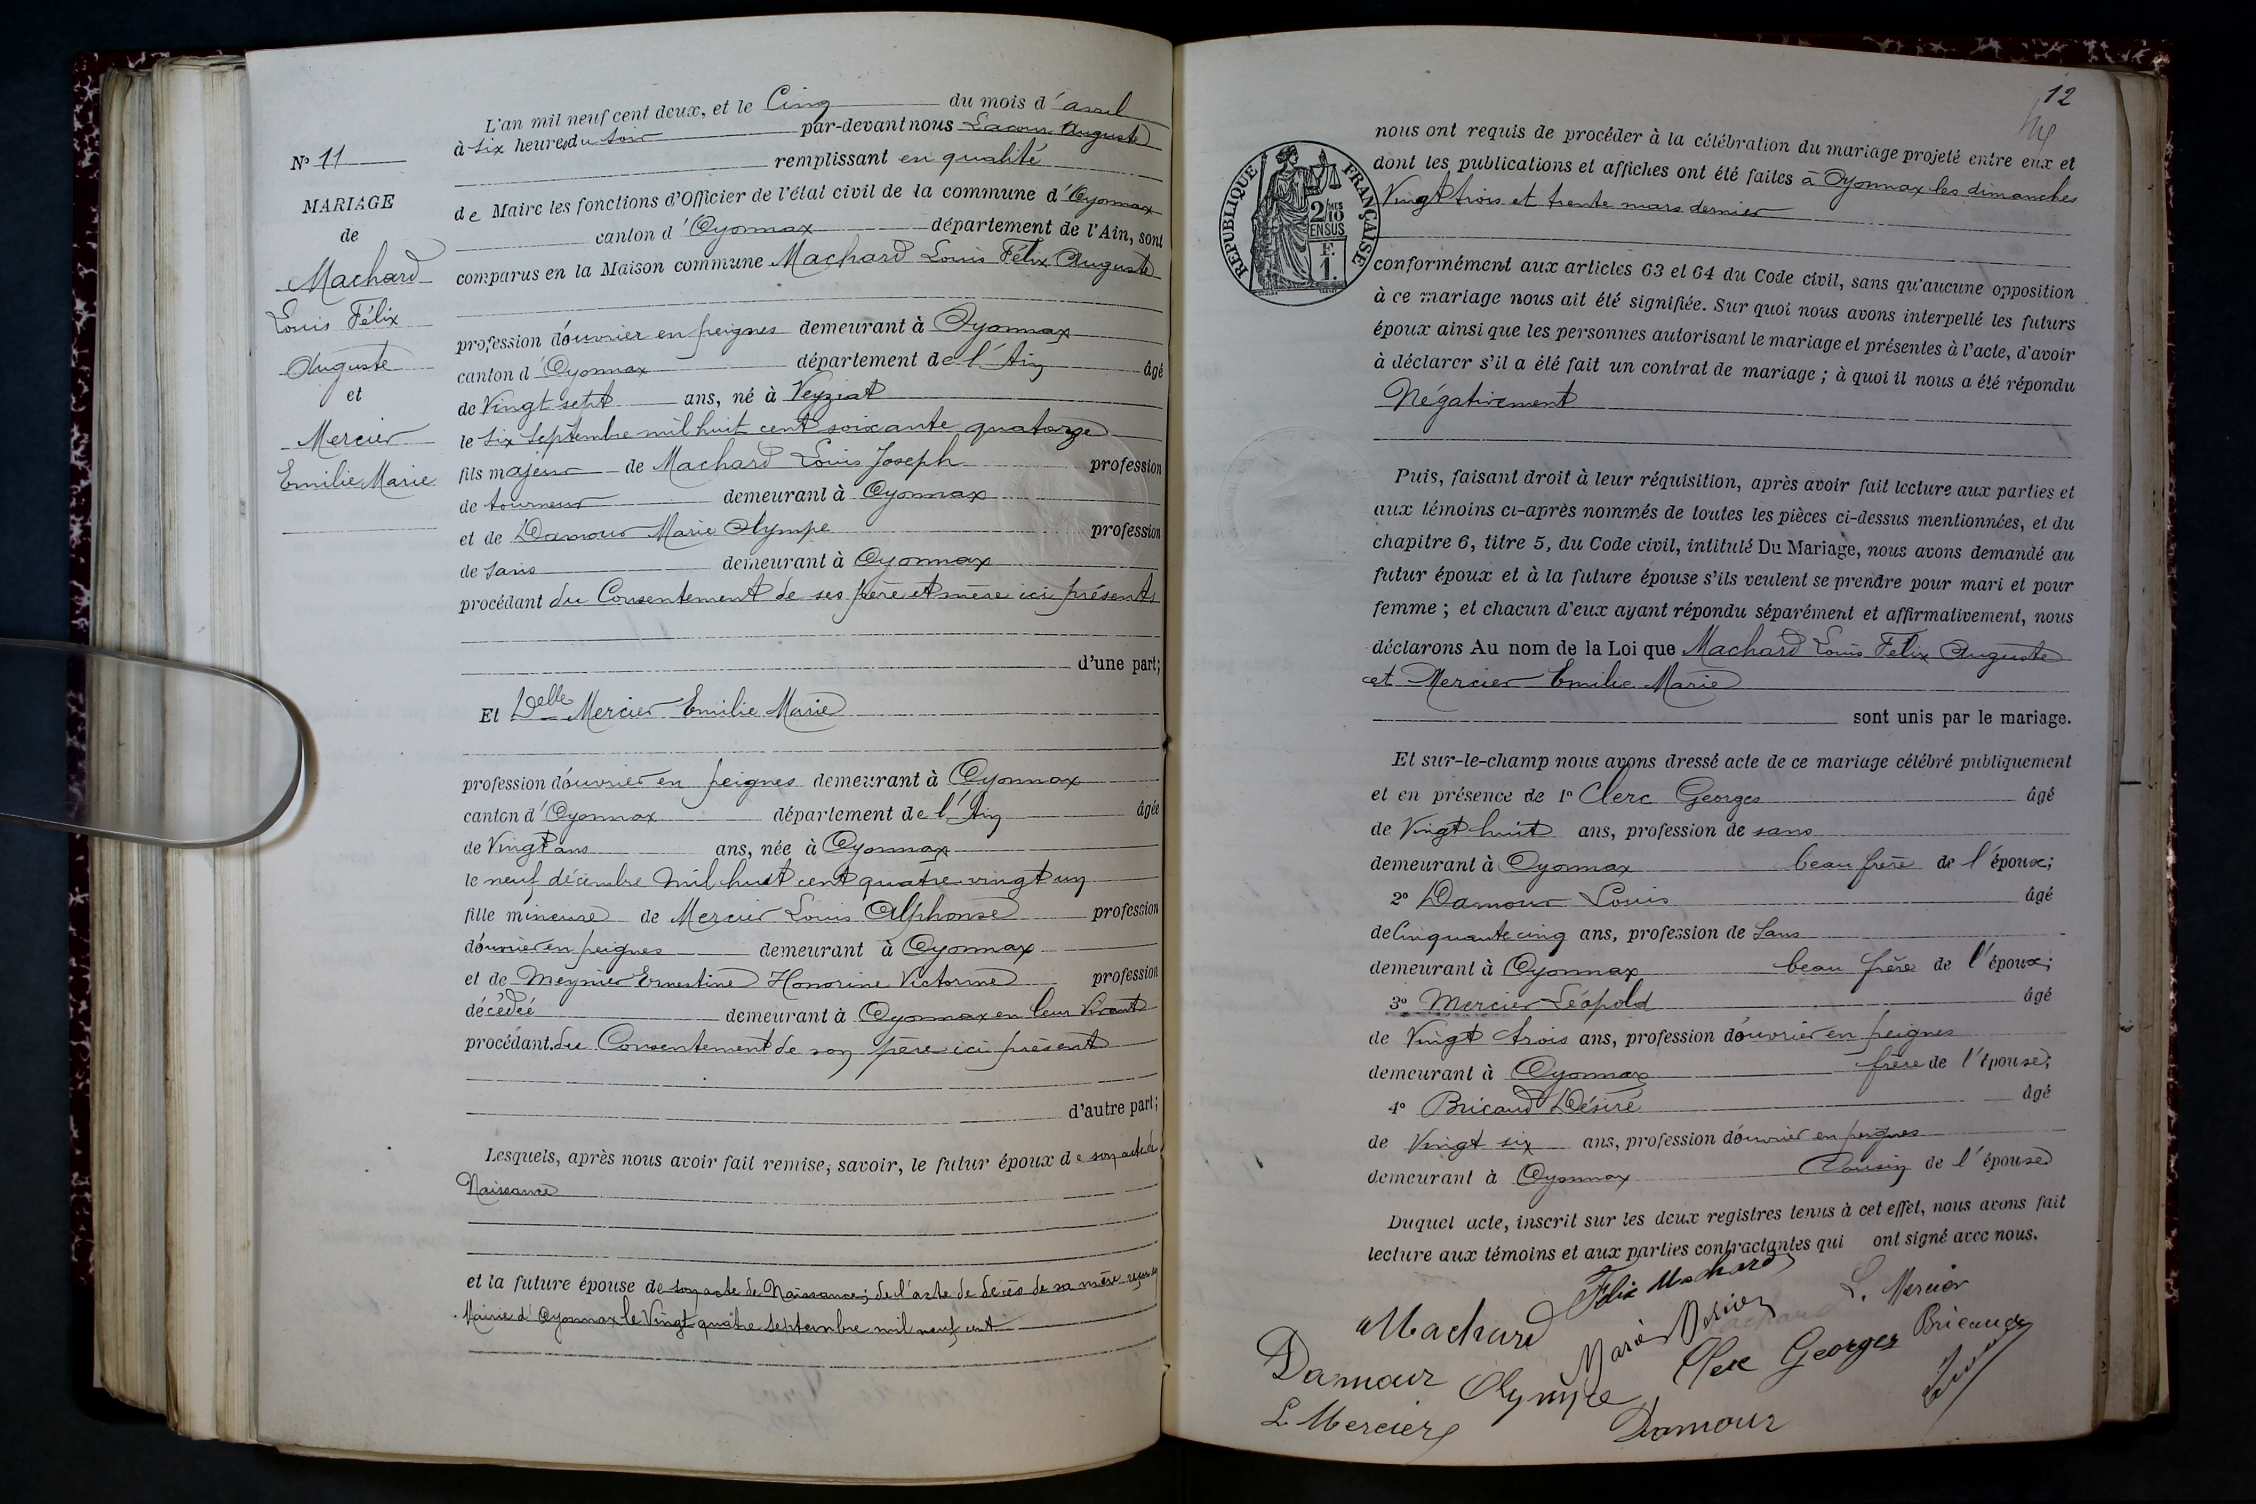 L'an mil neuf cent deux, et le Cinq du mois d'avril
à six heures du soir par-devant nous Lacour Auguste
remplissant en qualité
de Maire les fonctions d'Officier de l'état civil de la commune d'Oyonnax
canton d'Oyonnax département de l'Ain, sont
comparus en la Maison commune Machard Louis Félix Auguste
profession d'ouvrier en peignes demeurant à Oyonnax
canton d'Oyonnax département de l'Ain âgé
de Vingt sept ans, né à Veyziat
le six Septembre mil huit cent soixante quatorze
fils majeur de Machard Louis Joseph profession
de tourneur demeurant à Oyonnax
et de Damour Marie Olympe profession
de sans demeurant à Oyonnax
procédant du Consentement de ses père et mère ici présents
d'une part;
Et Delle Mercier Emilie Marie
profession d'ouvrier en peignes demeurant à Oyonnax
canton d'Oyonnax département de l'Ain âgée
de Vingt ans ans, née à Oyonnax
le neuf décembre mil huit cent quatre vingt un
fille mineure de Mercier Louis Alphonse profession
d'ouvrier en peignes demeurant à Oyonnax
et de Meynier Ernestine Honorine Victorine profession
décédée demeurant à Oyonnax en leur Vivant
procédant du Consentement de son père ici présent
d'autre part;
Lesquels, après nous avoir fait remise, savoir, le futur époux de son acte de
Naissance
et la future épouse de son acte de Naissance; de l'acte de décès de sa mère
Mairie d'Oyonnax le Vingt quatre Septembre mil neuf cent
N° 11
MARIAGE
de
Machard
Louis Félix
Auguste
et
Mercier
Emilie Marie
12
RÉPUBLIQUE FRANÇAISE
2/10
EN SUS
F.
1.
nous ont requis de procéder à la célébration du mariage projeté entre eux et
dont les publications et affiches ont été faites à Oyonnax les dimanches
Vingt trois et trente mars dernier
conformément aux articles 63 et 64 du Code civil, sans qu'aucune opposition
à ce mariage nous ait été signifiée. Sur quoi nous avons interpellé les futurs
époux ainsi que les personnes autorisant le mariage et présentes à l'acte, d'avoir
à déclarer s'il a été fait un contrat de mariage; à quoi il nous a été répondu
Négativement
Puis, faisant droit à leur réquisition, après avoir fait lecture aux parties et
aux témoins ci-après nommés de toutes les pièces ci-dessus mentionnées, et du
chapitre 6, titre 5, du Code civil, intitulé Du Mariage, nous avons demandé au
futur époux et à la future épouse s'ils veulent se prendre pour mari et pour
femme; et chacun d'eux ayant répondu séparément et affirmativement, nous
déclarons Au nom de la Loi que Machard Louis Félix Auguste
et Mercier Emilie Marie
sont unis par le mariage.
Et sur-le-champ nous avons dressé acte de ce mariage célébré publiquement
et en présence de 1° Clerc Georges âgé
de Vingt huit ans, profession de sans
demeurant à Oyonnax beau frère de l'époux;
2° Damour Louis âgé
de Cinquante cinq ans, profession de Sans
demeurant à Oyonnax beau frère de l'époux;
3° Mercier Léopold âgé
de Vingt trois ans, profession d'ouvrier en peignes
demeurant à Oyonnax frère de l'épouse;
4° Bricaud Désiré âgé
de Vingt six ans, profession d'ouvrier en peignes
demeurant à Oyonnax Cousin de l'épouse
Duquel acte, inscrit sur les deux registres tenus à cet effet, nous avons fait
lecture aux témoins et aux parties contractantes qui ont signé avec nous.
Félix Machard
L. Mercier
Machard
Bricaud
Damour Olympe
Clerc Georges
L Mercier
Damour